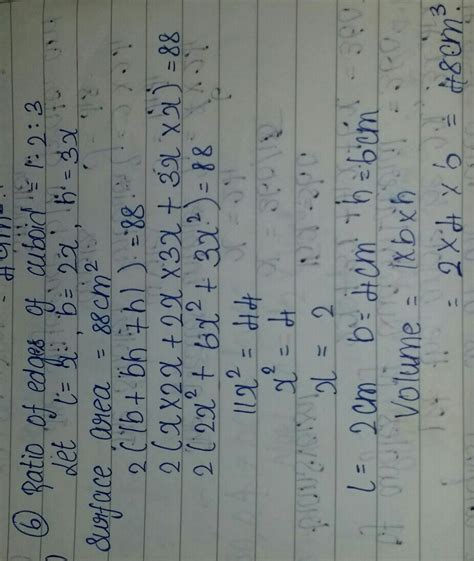 ⑥ Ratio of edges of cuboid = 1:2:3
Let l = x, b = 2x, h = 3x
Surface area = 88cm²
2(lb + bh + hl) = 88
2(x×2x + 2x×3x + 3x×x) = 88
2(2x² + 6x² + 3x²) = 88
11x² = 44
x² = 4
x = 2
l = 2cm b = 4cm h = 6cm
Volume = l×b×h
= 2×4×6 = 48cm³